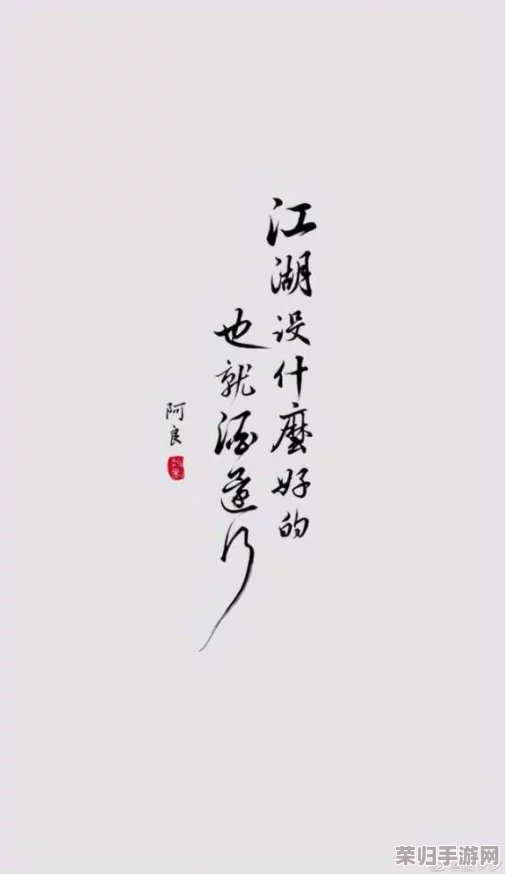 江湖没什麼好的
也就酒還行
阿良
荣归手游网